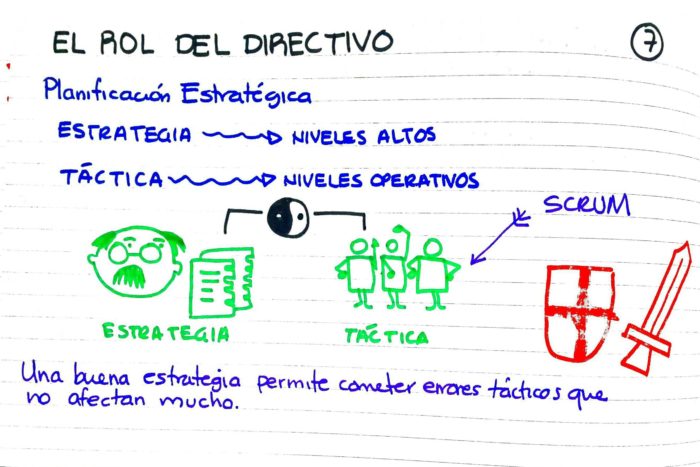 EL ROL DEL DIRECTIVO
7
Planificación Estratégica
ESTRATEGIA NIVELES ALTOS
TÁCTICA NIVELES OPERATIVOS
SCRUM
ESTRATEGIA
TÁCTICA
Una buena estrategia permite cometer errores tácticos que
no afectan mucho.